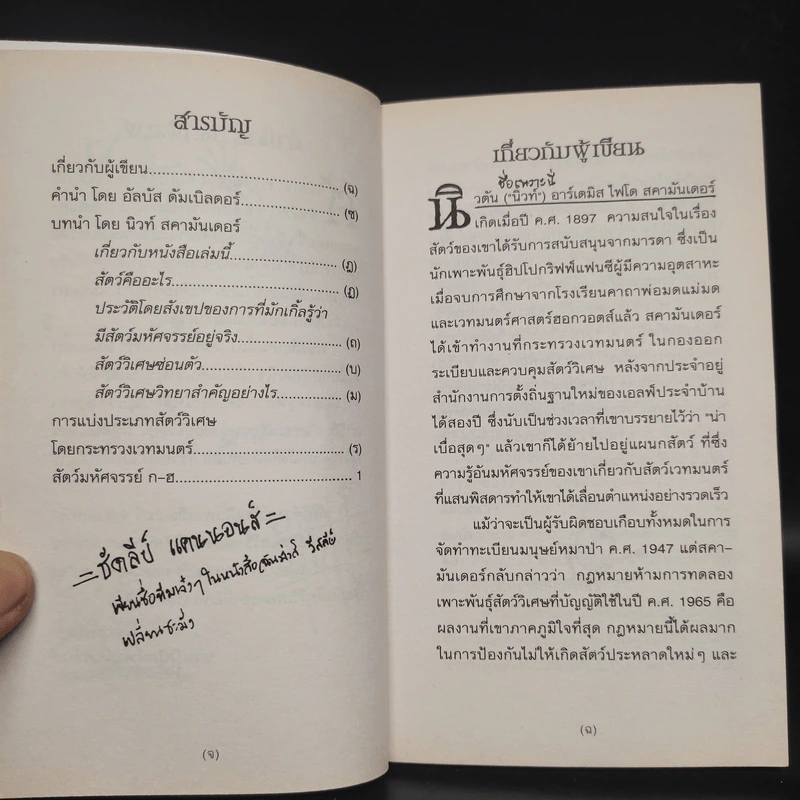 สารบัญ
เกี่ยวกับผู้เขียน.......................................... (ฉ)
คำนำ โดย อัลบัส ดัมเบิลดอร์...................... (ซ)
บทนำ โดย นิวท์ สคามันเดอร์
เกี่ยวกับหนังสือเล่มนี้........................ (ฎ)
สัตว์คืออะไร.................................... (ฏ)
ประวัติโดยสังเขปของการที่มักเกิ้ลรู้ว่า
มีสัตว์มหัศจรรย์อยู่จริง...................... (ถ)
สัตว์วิเศษซ่อนตัว............................. (บ)
สัตว์วิเศษวิทยาสำคัญอย่างไร.............. (ม)
การแบ่งประเภทสัตว์วิเศษ
โดยกระทรวงเวทมนตร์............................... (ร)
สัตว์มหัศจรรย์ ก-ฮ.................................... 1
=ชัดลีย์ แคนนอนส์=
(จ)
เกี่ยวกับผู้เขียน
ชื่อเพราะนิ
นิวตัน ("นิวท์") อาร์เตมิส ไฟโด สคามันเดอร์
เกิดเมื่อปี ค.ศ. 1897 ความสนใจในเรื่อง
สัตว์ของเขาได้รับการสนับสนุนจากมารดา ซึ่งเป็น
นักเพาะพันธุ์ฮิปโปกริฟฟ์แฟนซีผู้มีความอุตสาหะ
เมื่อจบการศึกษาจากโรงเรียนคาถาพ่อมดแม่มด
และเวทมนตร์ศาสตร์ฮอกวอตส์แล้ว สคามันเดอร์
ได้เข้าทำงานที่กระทรวงเวทมนตร์ ในกองออก
ระเบียบและควบคุมสัตว์วิเศษ หลังจากประจำอยู่
สำนักงานการตั้งถิ่นฐานใหม่ของเอลฟ์ประจำบ้าน
ได้สองปี ซึ่งนับเป็นช่วงเวลาที่เขาบรรยายไว้ว่า "น่า
เบื่อสุดๆ" แล้วเขาก็ได้ย้ายไปอยู่แผนกสัตว์ ที่ซึ่ง
ความรู้อันมหัศจรรย์ของเขาเกี่ยวกับสัตว์เวทมนตร์
ที่แสนพิสดารทำให้เขาได้เลื่อนตำแหน่งอย่างรวดเร็ว
แม้ว่าจะเป็นผู้รับผิดชอบเกือบทั้งหมดในการ
จัดทำทะเบียนมนุษย์หมาป่า ค.ศ. 1947 แต่สคา-
มันเดอร์กลับกล่าวว่า กฎหมายห้ามการทดลอง
เพาะพันธุ์สัตว์วิเศษที่บัญญัติใช้ในปี ค.ศ. 1965 คือ
ผลงานที่เขาภาคภูมิใจที่สุด กฎหมายนี้ได้ผลมาก
ในการป้องกันไม่ให้เกิดสัตว์ประหลาดใหม่ๆ และ
(ฉ)